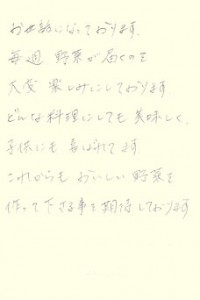 お世話になっております。
毎週 野菜が届くのを
大変 楽しみにしております。
どんな料理にしても美味しく、
子供にも喜ばれてます
これからも おいしい野菜を
作って下さる事を期待しております